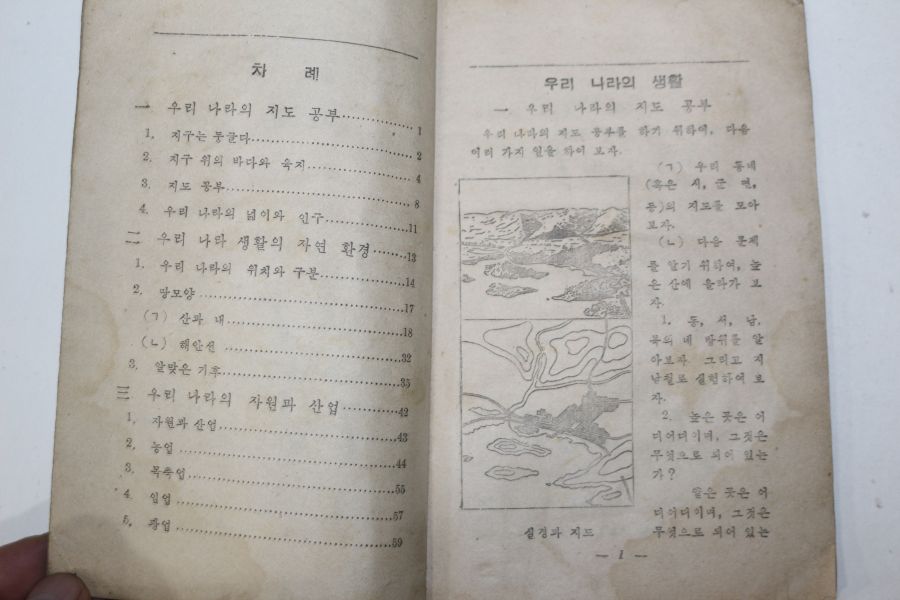 차 례
一 우리 나라의 지도 공부 1
1. 지구는 둥글다 2
2. 지구 위의 바다와 육지 4
3. 지도 공부 8
4. 우리 나라의 넓이와 인구 11
二 우리 나라 생활의 자연 환경 13
1. 우리 나라의 위치와 구분 14
2. 땅모양 17
(ㄱ) 산과 내 18
(ㄴ) 해안선 32
3. 알맞은 기후 35
三 우리 나라의 자원과 산업 42
1. 자원과 산업 43
2. 농업 44
3. 목축업 55
4. 임업 57
5. 광업 59
우리 나라의 생활
一 우리 나라의 지도 공부
우리 나라의 지도 공부를 하기 위하여, 다음
여러 가지 일을 하여 보자.
(ㄱ) 우리 동네
(혹은 시, 군 면,
등)의 지도를 모아
보자.
(ㄴ) 다음 문제
를 알기 위하여, 높
은 산에 올라가 보
자.
1. 동, 서, 남,
북의 네 방위를 알
아보자. 그리고 지
남철로 실험하여 보
자.
2. 높은 곳은 어
디어디이며, 그것은
무엇으로 되어 있는
가?
얕은 곳은 어
디어디이며, 그것은
무엇으로 되어 있는
실경과 지도
— 1 —